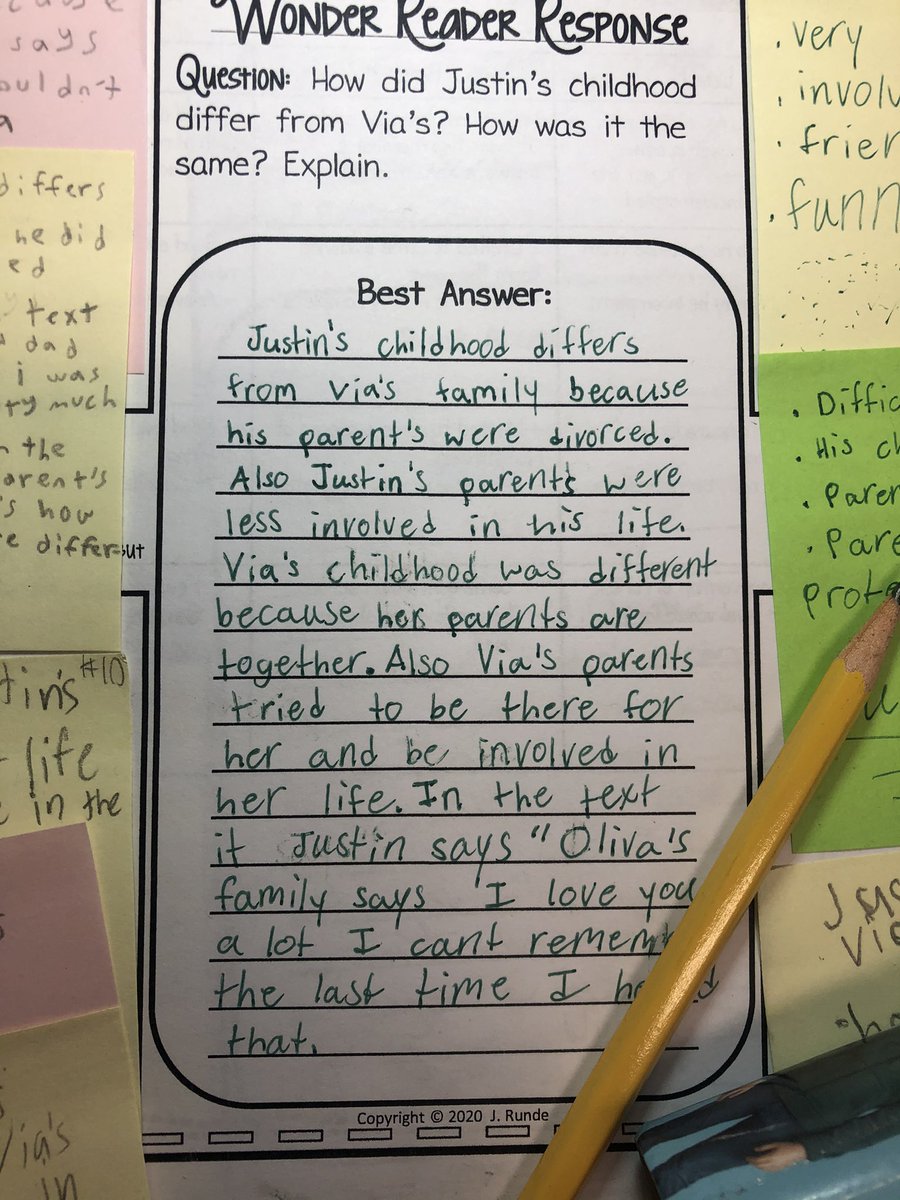 WONDER READER RESPONSE
QUESTION: How did Justin's childhood
differ from Via's? How was it the
same? Explain.
Best Answer:
Justin's childhood differs
from Via's family because
his parent's were divorced.
Also Justin's parent's were
less involved in his life.
Via's childhood was different
because her parents are
together. Also Via's parents
tried to be there for
her and be involved in
her life. In the text
it Justin says "Oliva's
family says 'I love you
a lot I cant
the last time I
that.
Copyright © 2020 J. Runde
says
a
differs
he did
ed
text
dad
i was
much
the
how
#10
life
in the
Via's
in
. very
. involv
. frien
. funn
. Diffic
. His ch
. Paren
. Pare
prote
Jus
Via